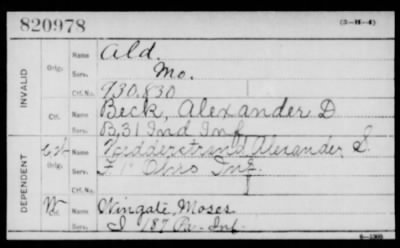 820978
(3-H-4)
INVALID
Orig.
Name Ald.
Serv. Mo.
Ctf. No. 930.830
Ctf.
Name Beck, Alexander D
Serv. B, 31 Ind Inf
DEPENDENT
Orig.
Name Alexander S.
Serv. Ohio Inf.
W Ctf.
Name Wingate, Moses
Serv. I 187 Pa. Inf.